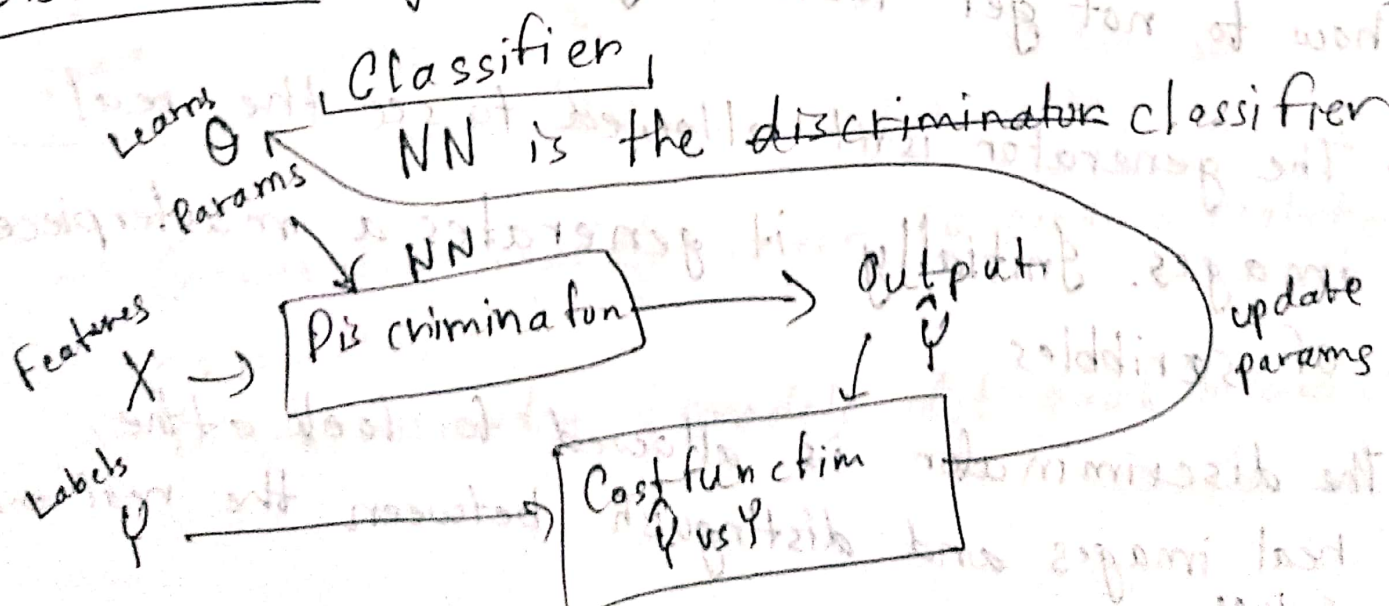 Classifier
Learns
θ
NN is the discriminator classifier
Params
NN
Features
X
Discriminator
Output
Ŷ
update
params
Labels
Y
Cost function
Ŷ vs Y